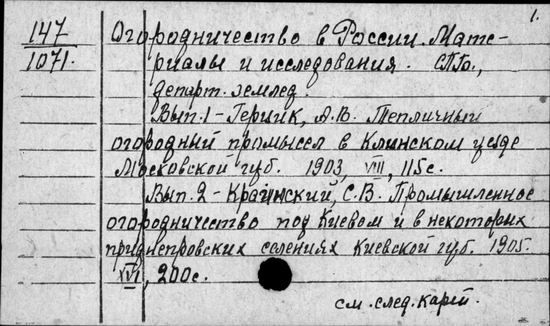 1.
147
1071.
Огородничество в России. Мате-
риалы и исследования. СПб.,
департ. землед.
Вып. 1 - Герцик, А.В. Тепличный
огородный промысел в Клинском уезде
Московской губ. 1903, VIII, 115с.
Вып. 2 - Краинский, С.В. Промышленное
огородничество под Киевом и в некоторых
приднепровских селениях Киевской губ. 1905.
XVI, 200с.
см. след. карт.